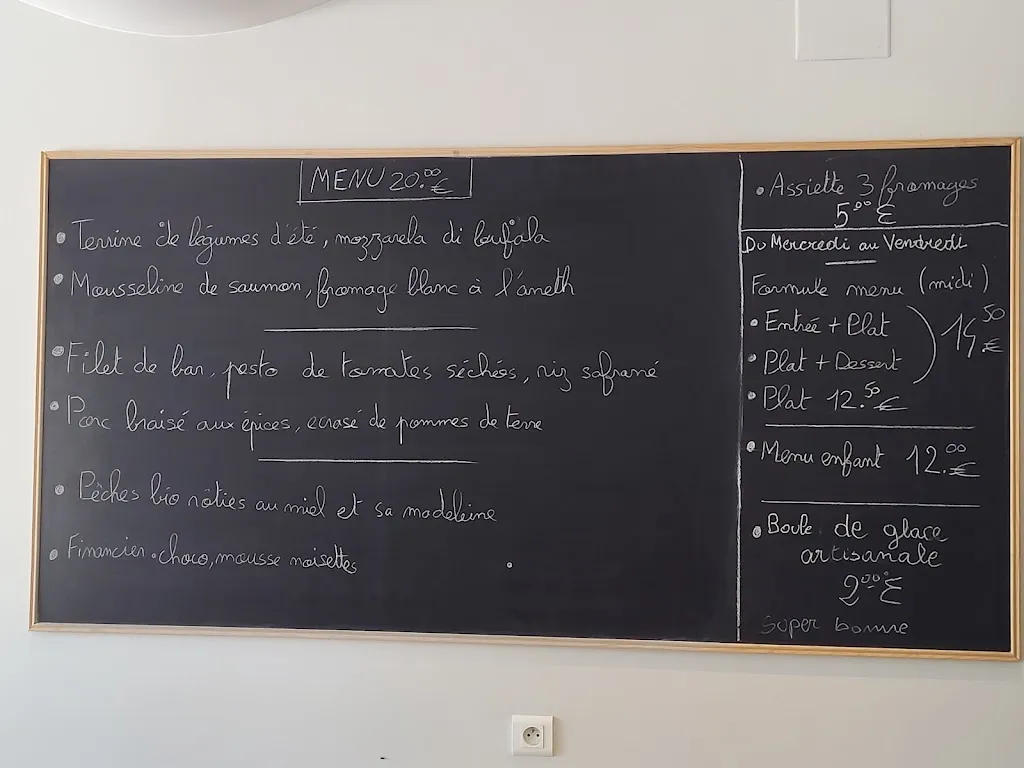 MENU 20.00 €
Terrine de légumes d'été, mozzarela di boufala
Mousseline de saumon, fromage blanc à l'aneth
Filet de bar, pesto de tomates séchés, riz safrané
Porc braisé aux épices, ecrasé de pommes de terre
Pêches bio rôties au miel et sa madeleine
Financier choco, mousse noisettes
Assiette 3 fromages
5.00 €
Du Mercredi au Vendredi
Formule menu (midi)
Entrée + Plat
14.50 €
Plat + Dessert
Plat 12.50 €
Menu enfant 12.00 €
Boule de glace
artisanale
2.00 €
Super bonne